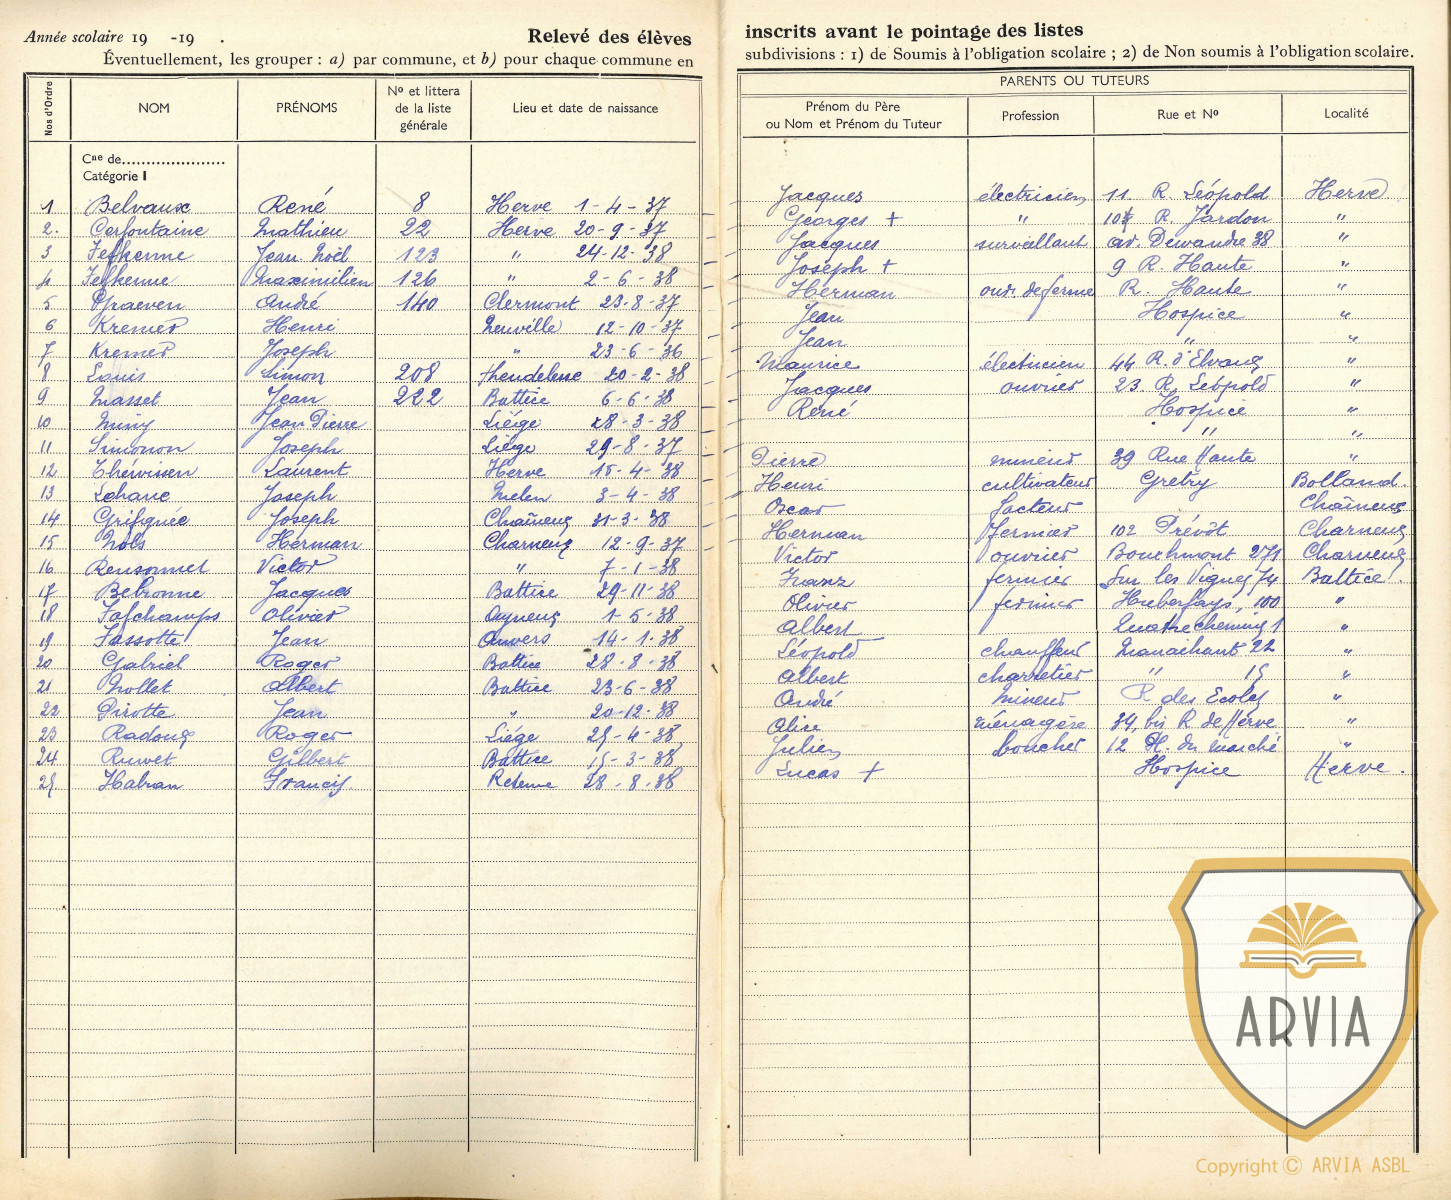 Année scolaire 19 -19 . Relevé des élèves
Éventuellement, les grouper : a) par commune, et b) pour chaque commune en
Nos d'Ordre NOM PRÉNOMS Nº et littera de la liste générale Lieu et date de naissance
Cne de.....................
Catégorie I
1 Belvaux René 8 Herve 1-4-37
2. Cerfontaine Mathieu 22 Herve 20-9-37
3 Jefkenne Jean Noël 123 " 24-12-38
4 Jefkenne Maximilien 126 " 2-6-38
5 Graeven André 140 Clermont 23-8-37
6 Kremer Henri Neuville 12-10-37
7 Kremer Joseph " 23-6-36
8 Louis Simon 208 Thendelesse 20-2-38
9 Masset Jean 222 Battice 6-6-38
10 Miny Jean Pierre Liége 28-3-38
11 Simonon Joseph Liége 29-8-37
12 Laurent Herve 15-4-38
13 Lehane Joseph Melen 3-4-38
14 Grifgnée Joseph Chaîneux 31-3-38
15 Nols Herman Charneux 12-9-37
16 Rensonnet Victor " 7-1-38
17 Bebronne Jacques Battice 29-11-38
18 Fafchamps Olivier Ayneux 1-5-38
19 Fassotte Jean Anvers 14-1-38
20 Gabriel Roger Battice 28-8-38
21 Nollet Albert Battice 23-6-38
22 Pirotte Jean " 20-12-38
23 Radoux Roger Liége 25-4-38
24 Ruwet Gilbert Battice 15-3-38
25. Habran Francis 28-8-38
inscrits avant le pointage des listes
subdivisions : 1) de Soumis à l'obligation scolaire ; 2) de Non soumis à l'obligation scolaire.
PARENTS OU TUTEURS
Prénom du Père ou Nom et Prénom du Tuteur Profession Rue et Nº Localité
Jacques électricien 11. R. Léopold Herve
Georges + " R. Jardon "
Jacques surveillant av. Dewandre 38 "
Joseph + 9 R. Haute "
Herman ouv. de ferme R. Haute "
Jean Hospice "
Jean " "
Maurice électricien 44 R. d'Elvaux "
Jacques ouvrier 23 R. Léopold "
René Hospice "
" "
Pierre mineur 39 Rue Haute "
Henri cultivateur Gretry Bolland.
Oscar facteur Chaîneux
Herman fermier 102 Prévôt Charneux
Victor ouvrier Bouxhmont 271 Charneux
Franz fermier Sur les Vignes 74 Battice.
Olivier fermier Huberfays, 100 "
Albert Quatre chemins 1 "
Léopold chauffeur Manaihant 22 "
Albert charretier " 15 "
André mineur R des Ecoles "
Alice ménagère 34, bis R. de Herve "
Julien boucher 12 Pl. du marché "
Lucas + Hospice Herve.
ARVIA
Copyright © ARVIA ASBL